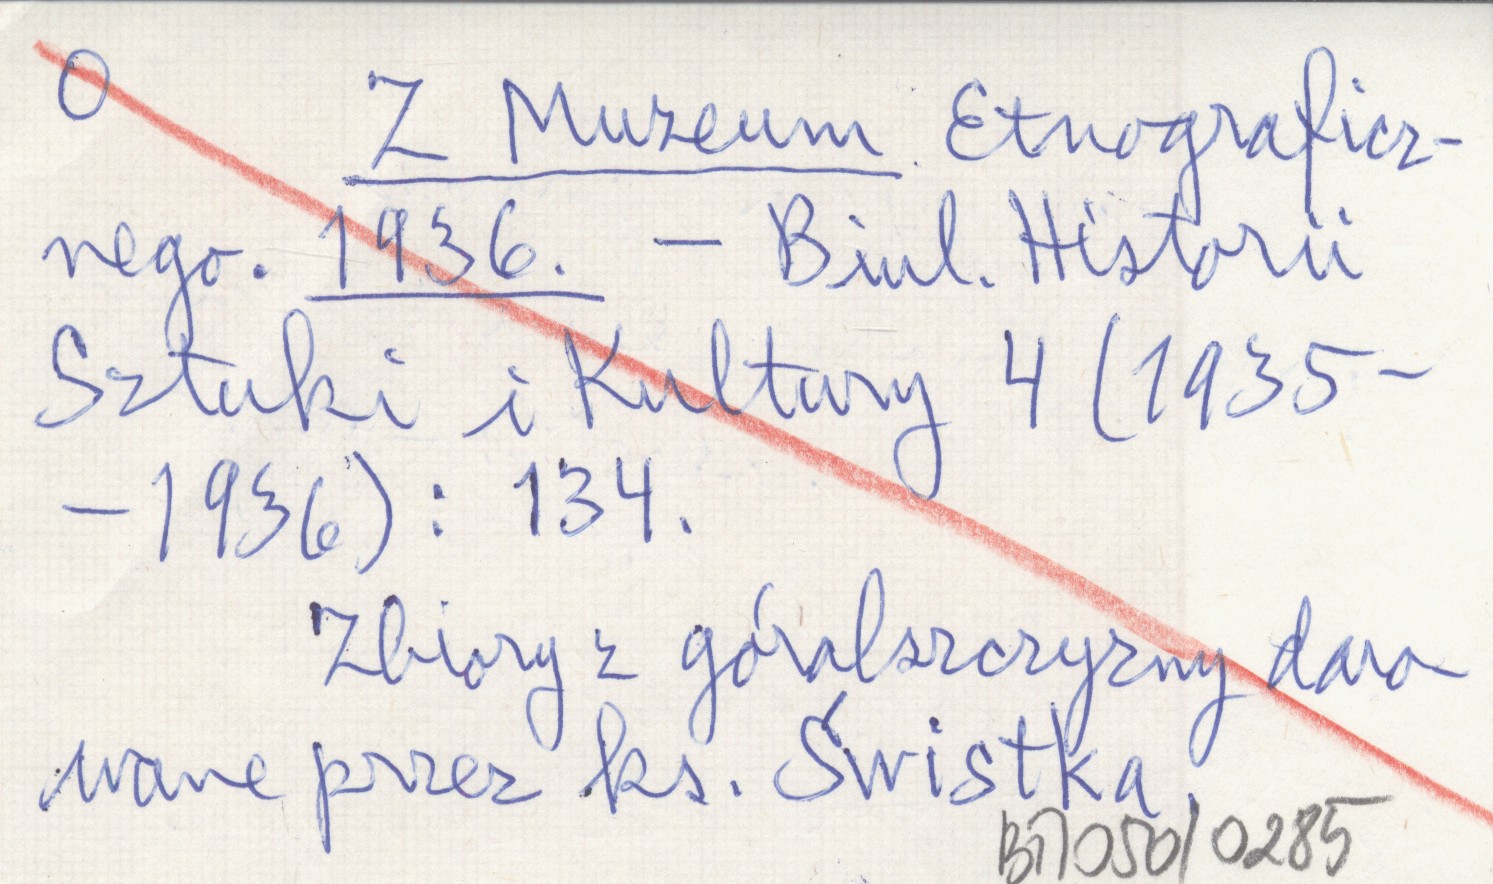 O Z Muzeum Etnograficz-
nego. 1936. — Biul. Historii
Sztuki i Kultury 4 (1935-
-1936): 134.
Zbiory z góralszczyzny daro
wane przez ks. Świstka.
0285